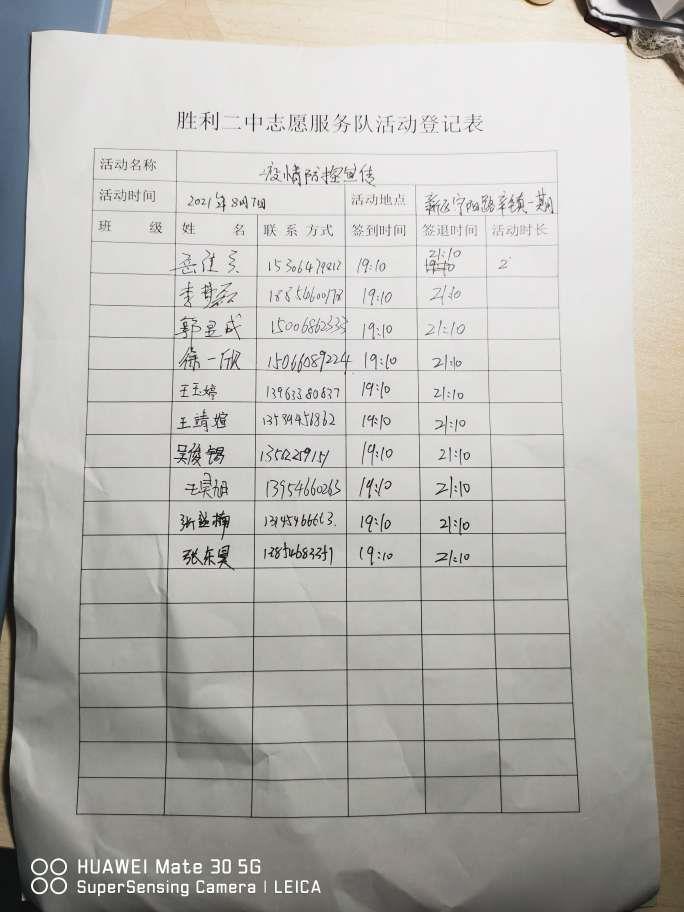 胜利二中志愿服务队活动登记表
活动名称 疫情防控宣传
活动时间 2021年8月7日 活动地点 新区宁阳路辛镇一期
班 级 姓 名 联系方式 签到时间 签退时间 活动时长
19:10 21:10 2
19:10 21:10
郭昱成 15006862333 19:10 21:10
徐一欣 15066089224 19:10 21:10
王玉婷 13963380837 19:10 21:10
王靖媗 19:10 21:10
吴俊锡 19:10 21:10
王昊旭 13954660263 19:10 21:10
19:10 21:10
张东昊 13854683351 19:10 21:10
HUAWEI Mate 30 5G
SuperSensing Camera | LEICA